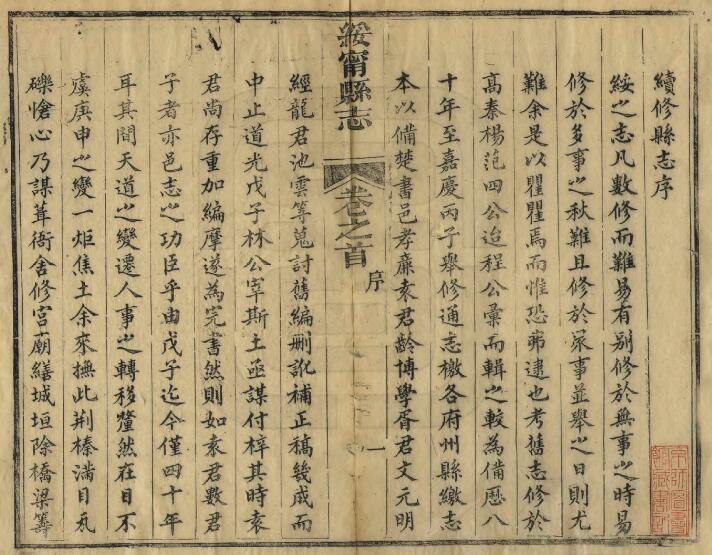 續修縣志序
綏之志凡數修而難易有别修於無事之時易
修於多事之秋難且修於眾事並舉之日則尤
難余是以瞿瞿焉而惟恐弗逮也考舊志修於
高秦楊范四公迨程公彙而輯之較為備歷八
十年至嘉慶丙子舉修通志檄各府州縣繳志
本以備楚書邑孝廉袁君齡博學胥君文元明
綏甯縣志
卷之首
序
一
經龍君池雲等蒐討舊編删訛補正稿幾成而
中止道光戊子林公宰斯土亟謀付梓其時袁
君尚存重加編摩遂為完書然則如袁君數君
子者亦邑志之功臣乎由戊子迄今僅四十年
耳其間天道之變遷人事之轉移釐然在目不
虞庚申之變一炬焦土余來撫此荆榛滿目瓦
礫愴心乃謀葺衙舍修宮廟繕城垣除橋梁籌